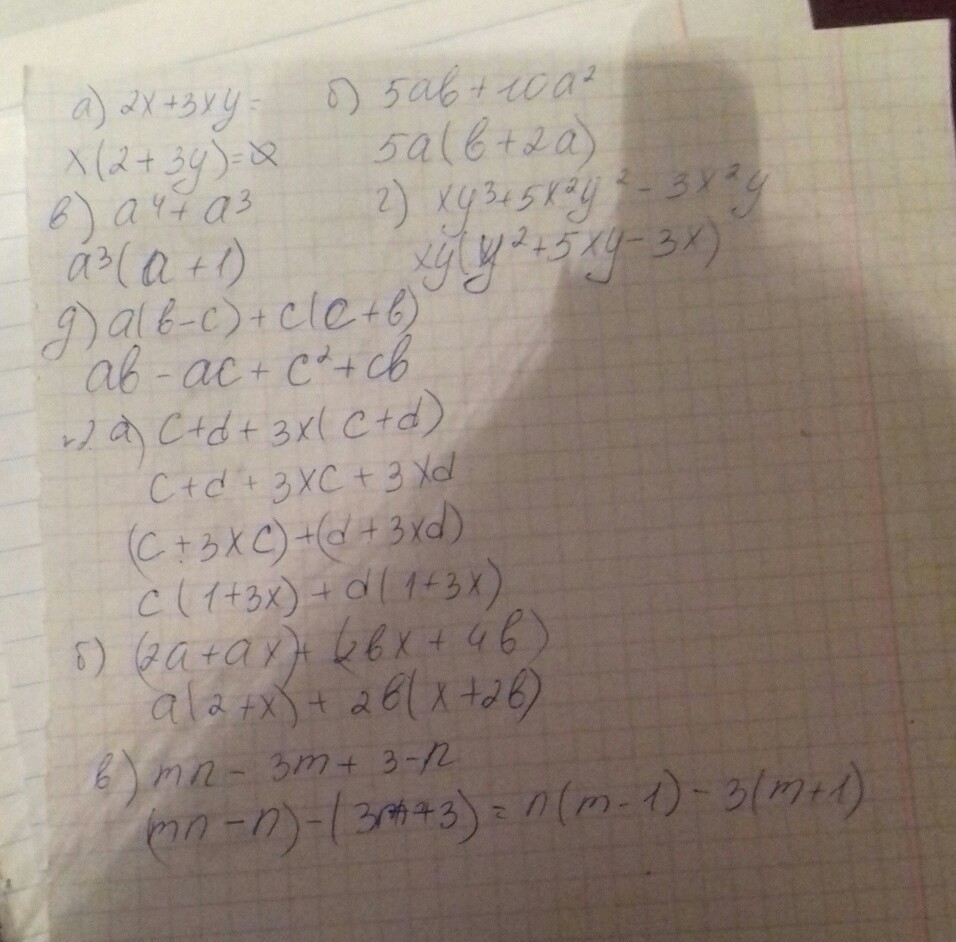 а) 2x+3xy=
б) 5ab+10a²
x(2+3y)=
5a(b+2a)
в) a⁴+a³
г) xy³+5x²y²-3x²y
a³(a+1)
xy(y²+5xy-3x)
д) a(b-c)+c(c+b)
ab-ac+c²+cb
№2. а) c+d+3x(c+d)
c+d+3xc+3xd
(c+3xc)+(d+3xd)
c(1+3x)+d(1+3x)
б) (2a+ax)+(2bx+4b)
a(2+x)+2b(x+2b)
в) mn-3m+3-n
(mn-n)-(3m+3)=n(m-1)-3(m+1)